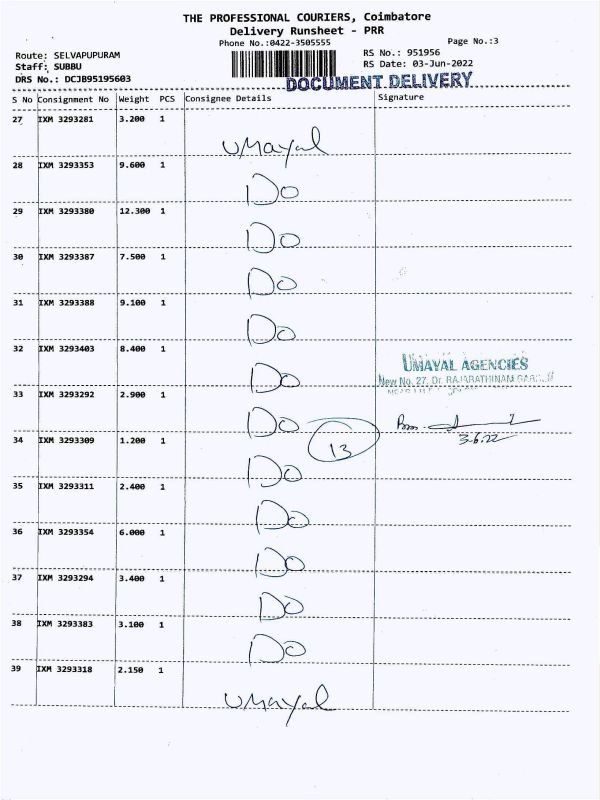 THE PROFESSIONAL COURIERS, Coimbatore
Delivery Runsheet - PRR
Phone No.:0422-3505555 Page No.:3
Route: SELVAPUPURAM RS No.: 951956
Staff: SUBBU RS Date: 03-Jun-2022
DRS No.: DCJB95195603 DOCUMENT DELIVERY
S No Consignment No Weight PCS Consignee Details Signature
27 IXM 3293281 3.200 1
Umayal
28 IXM 3293353 9.600 1
Do
29 IXM 3293380 12.300 1
Do
30 IXM 3293387 7.500 1
Do
31 IXM 3293388 9.100 1
Do
32 IXM 3293403 8.400 1
UMAYAL AGENCIES
Do New No. 27, Dr. RAJARATHINAM
33 IXM 3293292 2.900 1
Do
13 3-6-22
34 IXM 3293309 1.200 1
Do
35 IXM 3293311 2.400 1
Do
36 IXM 3293354 6.000 1
Do
37 IXM 3293294 3.400 1
Do
38 IXM 3293383 3.100 1
Do
39 IXM 3293318 2.150 1
Umayal